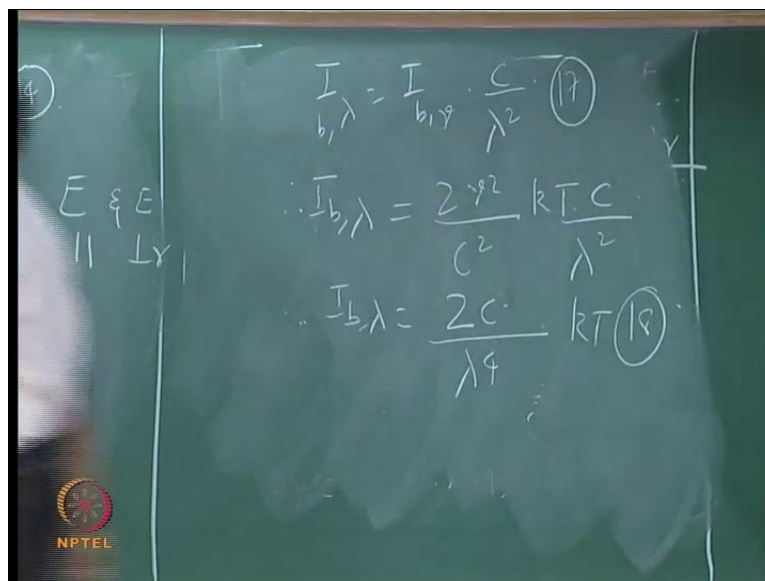 4
E & E
|| ⊥r
I_{b,λ} = I_{b,ν} · c/λ² (17)
∴ I_{b,λ} = 2ν²/c² kT · c/λ²
∴ I_{b,λ} = 2c/λ⁴ kT (18)
NPTEL